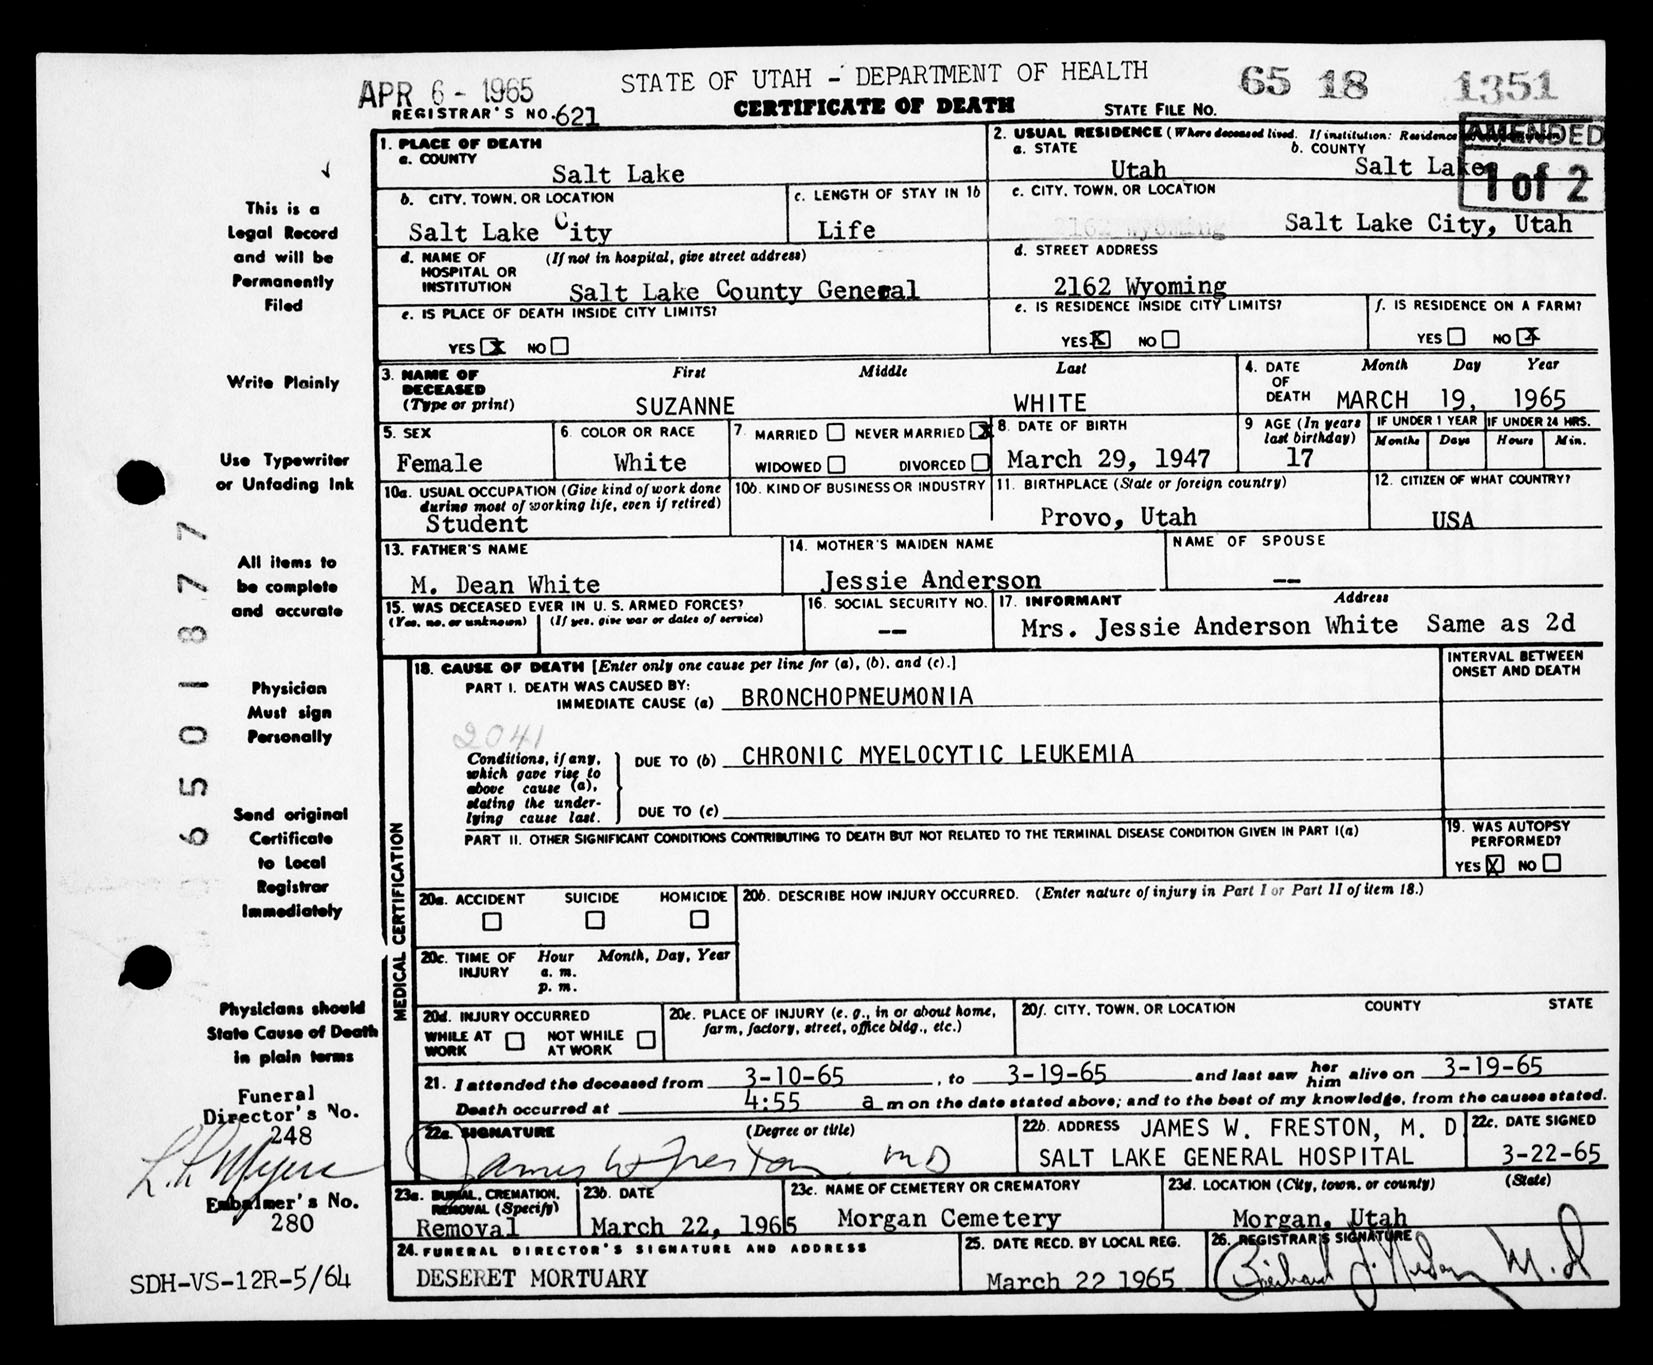 APR 6 - 1965
STATE OF UTAH - DEPARTMENT OF HEALTH
65 18 1351
REGISTRAR'S NO. 621
CERTIFICATE OF DEATH
STATE FILE NO.
AMENDED
1 of 2
1. PLACE OF DEATH
a. COUNTY
Salt Lake
2. USUAL RESIDENCE (Where deceased lived. If institution: Residence
a. STATE
Utah
b. COUNTY
Salt Lake
b. CITY, TOWN, OR LOCATION
Salt Lake City
c. LENGTH OF STAY IN 1b
Life
c. CITY, TOWN, OR LOCATION
2162 Wyoming Salt Lake City, Utah
d. NAME OF HOSPITAL OR INSTITUTION (If not in hospital, give street address)
Salt Lake County General
d. STREET ADDRESS
2162 Wyoming
e. IS PLACE OF DEATH INSIDE CITY LIMITS?
YES X NO
e. IS RESIDENCE INSIDE CITY LIMITS?
YES X NO
f. IS RESIDENCE ON A FARM?
YES NO X
3. NAME OF DECEASED (Type or print)
First Middle Last
SUZANNE WHITE
4. DATE OF DEATH
Month Day Year
MARCH 19, 1965
5. SEX
Female
6. COLOR OR RACE
White
7. MARRIED NEVER MARRIED X
WIDOWED DIVORCED
8. DATE OF BIRTH
March 29, 1947
9 AGE (In years last birthday)
17
IF UNDER 1 YEAR
Months Days
IF UNDER 24 HRS.
Hours Min.
10a. USUAL OCCUPATION (Give kind of work done during most of working life, even if retired)
Student
10b. KIND OF BUSINESS OR INDUSTRY
11. BIRTHPLACE (State or foreign country)
Provo, Utah
12. CITIZEN OF WHAT COUNTRY?
USA
13. FATHER'S NAME
M. Dean White
14. MOTHER'S MAIDEN NAME
Jessie Anderson
NAME OF SPOUSE
--
15. WAS DECEASED EVER IN U. S. ARMED FORCES?
(Yes, no, or unknown) (If yes, give war or dates of service)
16. SOCIAL SECURITY NO.
--
17. INFORMANT Address
Mrs. Jessie Anderson White Same as 2d
MEDICAL CERTIFICATION
18. CAUSE OF DEATH [Enter only one cause per line for (a), (b), and (c).]
INTERVAL BETWEEN ONSET AND DEATH
PART I. DEATH WAS CAUSED BY:
IMMEDIATE CAUSE (a) BRONCHOPNEUMONIA
2041
Conditions, if any, which gave rise to above cause (a), stating the underlying cause last.
DUE TO (b) CHRONIC MYELOCYTIC LEUKEMIA
DUE TO (c)
PART II. OTHER SIGNIFICANT CONDITIONS CONTRIBUTING TO DEATH BUT NOT RELATED TO THE TERMINAL DISEASE CONDITION GIVEN IN PART I(a)
19. WAS AUTOPSY PERFORMED?
YES X NO
20a. ACCIDENT SUICIDE HOMICIDE
20b. DESCRIBE HOW INJURY OCCURRED. (Enter nature of injury in Part I or Part II of item 18.)
20c. TIME OF INJURY Hour Month, Day, Year
a. m.
p. m.
20d. INJURY OCCURRED
WHILE AT WORK NOT WHILE AT WORK
20e. PLACE OF INJURY (e. g., in or about home, farm, factory, street, office bldg., etc.)
20f. CITY, TOWN, OR LOCATION COUNTY STATE
21. I attended the deceased from 3-10-65, to 3-19-65 and last saw her him alive on 3-19-65
Death occurred at 4:55 a m on the date stated above; and to the best of my knowledge, from the causes stated.
22a. SIGNATURE (Degree or title)
James W Freston MD
22b. ADDRESS JAMES W. FRESTON, M. D
SALT LAKE GENERAL HOSPITAL
22c. DATE SIGNED
3-22-65
23a. BURIAL, CREMATION, REMOVAL (Specify)
Removal
23b. DATE
March 22, 1965
23c. NAME OF CEMETERY OR CREMATORY
Morgan Cemetery
23d. LOCATION (City, town, or county) (State)
Morgan, Utah
24. FUNERAL DIRECTOR'S SIGNATURE AND ADDRESS
DESERET MORTUARY
25. DATE RECD. BY LOCAL REG.
March 22 1965
26. REGISTRAR'S SIGNATURE
M.D
This is a
Legal Record
and will be
Permanently
Filed
Write Plainly
Use Typewriter
or Unfading Ink
All items to
be complete
and accurate
Physician
Must sign
Personally
Send original
Certificate
to Local
Registrar
Immediately
Physicians should
State Cause of Death
in plain terms
Funeral
Director's No.
248
Embalmer's No.
280
6501877
SDH-VS-12R-5/64